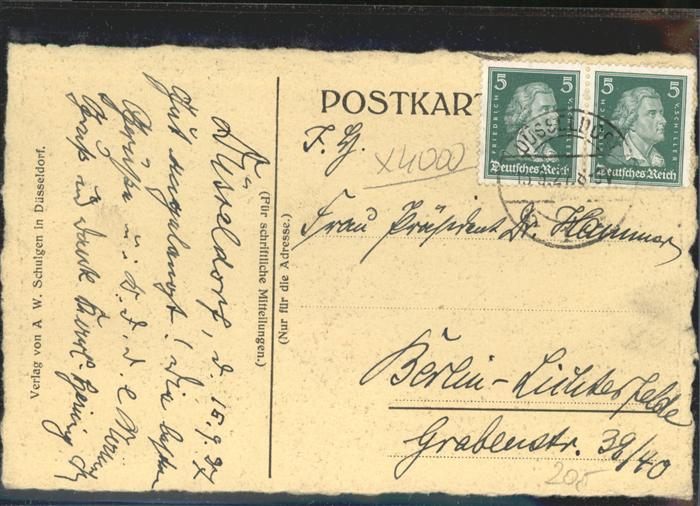 POSTKARTE
(Für schriftliche Mitteilungen.)
(Nur für die Adresse.)
Verlag von A. W. Schulgen in Düsseldorf.
Düsseldorf, d. 15.9.27
Gut angelangt! Die besten
Grüße
Gruß und Dank
5 5
FRIEDRICH V. SCHILLER
Deutsches Reich
5 5
FRIEDRICH V. SCHILLER
Deutsches Reich
DÜSSELDORF
X4000
Frau Präsident Dr.
Berlin-Lichterfelde
Grabenstr. 38/40